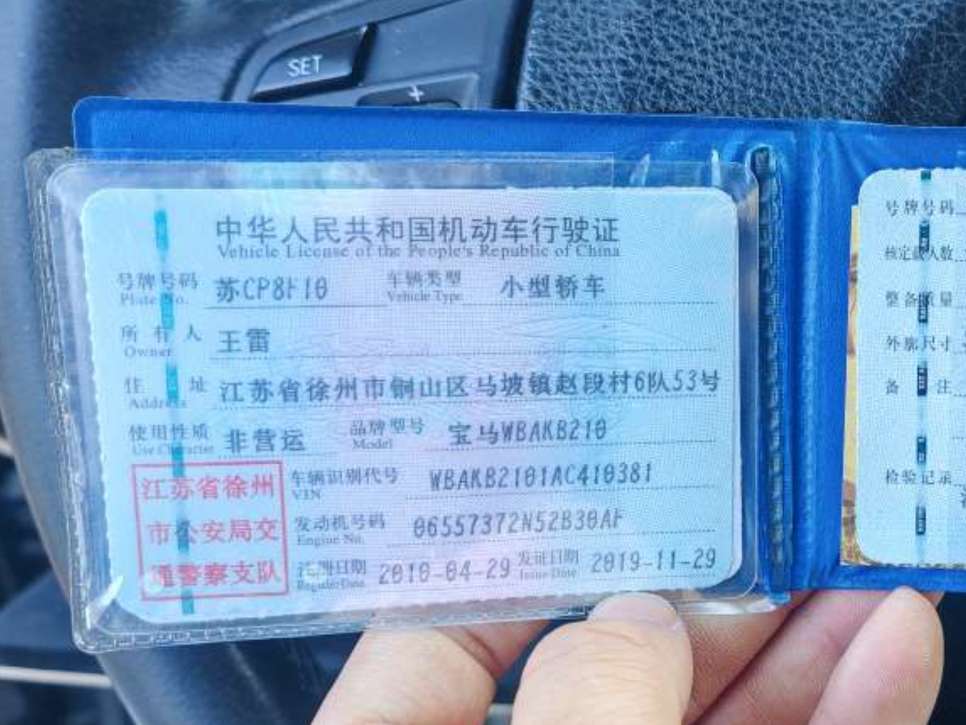 SET
+
中华人民共和国机动车行驶证
Vehicle License of the People's Republic of China
号牌号码 苏CP8F10 车辆类型 小型轿车
Plate No. Vehicle Type
所有人 王雷
Owner
住址 江苏省徐州市铜山区马坡镇赵段村6队53号
Address
使用性质 非营运 品牌型号 宝马WBAKB210
Use Character Model
江苏省徐州
市公安局交
通警察支队
车辆识别代号 WBAKB2101AC410381
VIN
发动机号码 06557372N52B30AF
Engine No.
注册日期 2010-04-29 发证日期 2019-11-29
Register Date Issue Date
号牌号码
核定载人数
整备质量
外廓尺寸
备注
检验记录